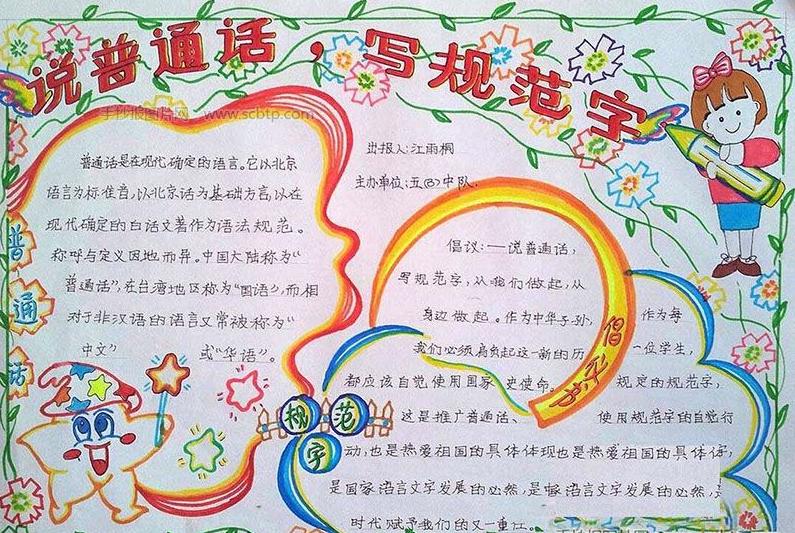 说普通话，写规范字
手抄报图片网 www.scbtp.com
普通话
普通话是在现代确定的语言。它以北京
语言为标准音，以北京话为基础方言，以在
现代确定的白话文著作为语法规范。
称呼与定义因地而异。中国大陆称为“
普通话”，在台湾地区称为“国语”，而相
对于非汉语的语言又常被称为“
中文” 或“华语”。
出报人：江雨桐
主办单位：五(3)中队
倡议：——说普通话，
写规范字，从我们做起，从
身边做起。作为中华子孙， 作为每
我们必须肩负起这一新的历 一位学生，
都应该自觉使用国家 史使命。 规定的规范字，
这是推广普通话、 使用规范字的自觉行
动，也是热爱祖国的具体体现也是热爱祖国的具体体
是国家语言文字发展的必然，是 语言文字发展的必然，
时代赋予我们的又一重
倡
规范字